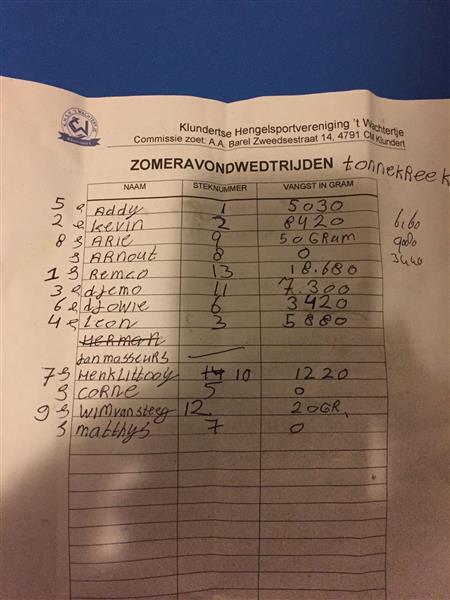 Klundertse Hengelsportvereniging 't Wachtertje
Commissie zoet: A.A. Barel Zweedsestraat 14, 4791 CM Klundert
ZOMERAVONDWEDTRIJDEN tonnekreek
NAAM STEKNUMMER VANGST IN GRAM
5 e Addy 1 5030
2 e Kevin 2 8420
8 s ARie 9 50 GRam
s ARnout 8 0
1 s Remco 13 18.680
3 e djemo 11 7.300
6 e djowie 6 3420
4 e Leon 3 5880
HERMAN
Jan masseurs
7 s Henk Littooy 14 10 1220
s CORNE 5 0
9 s WimvanSteeg 12 20GR,
s matthys 7 0